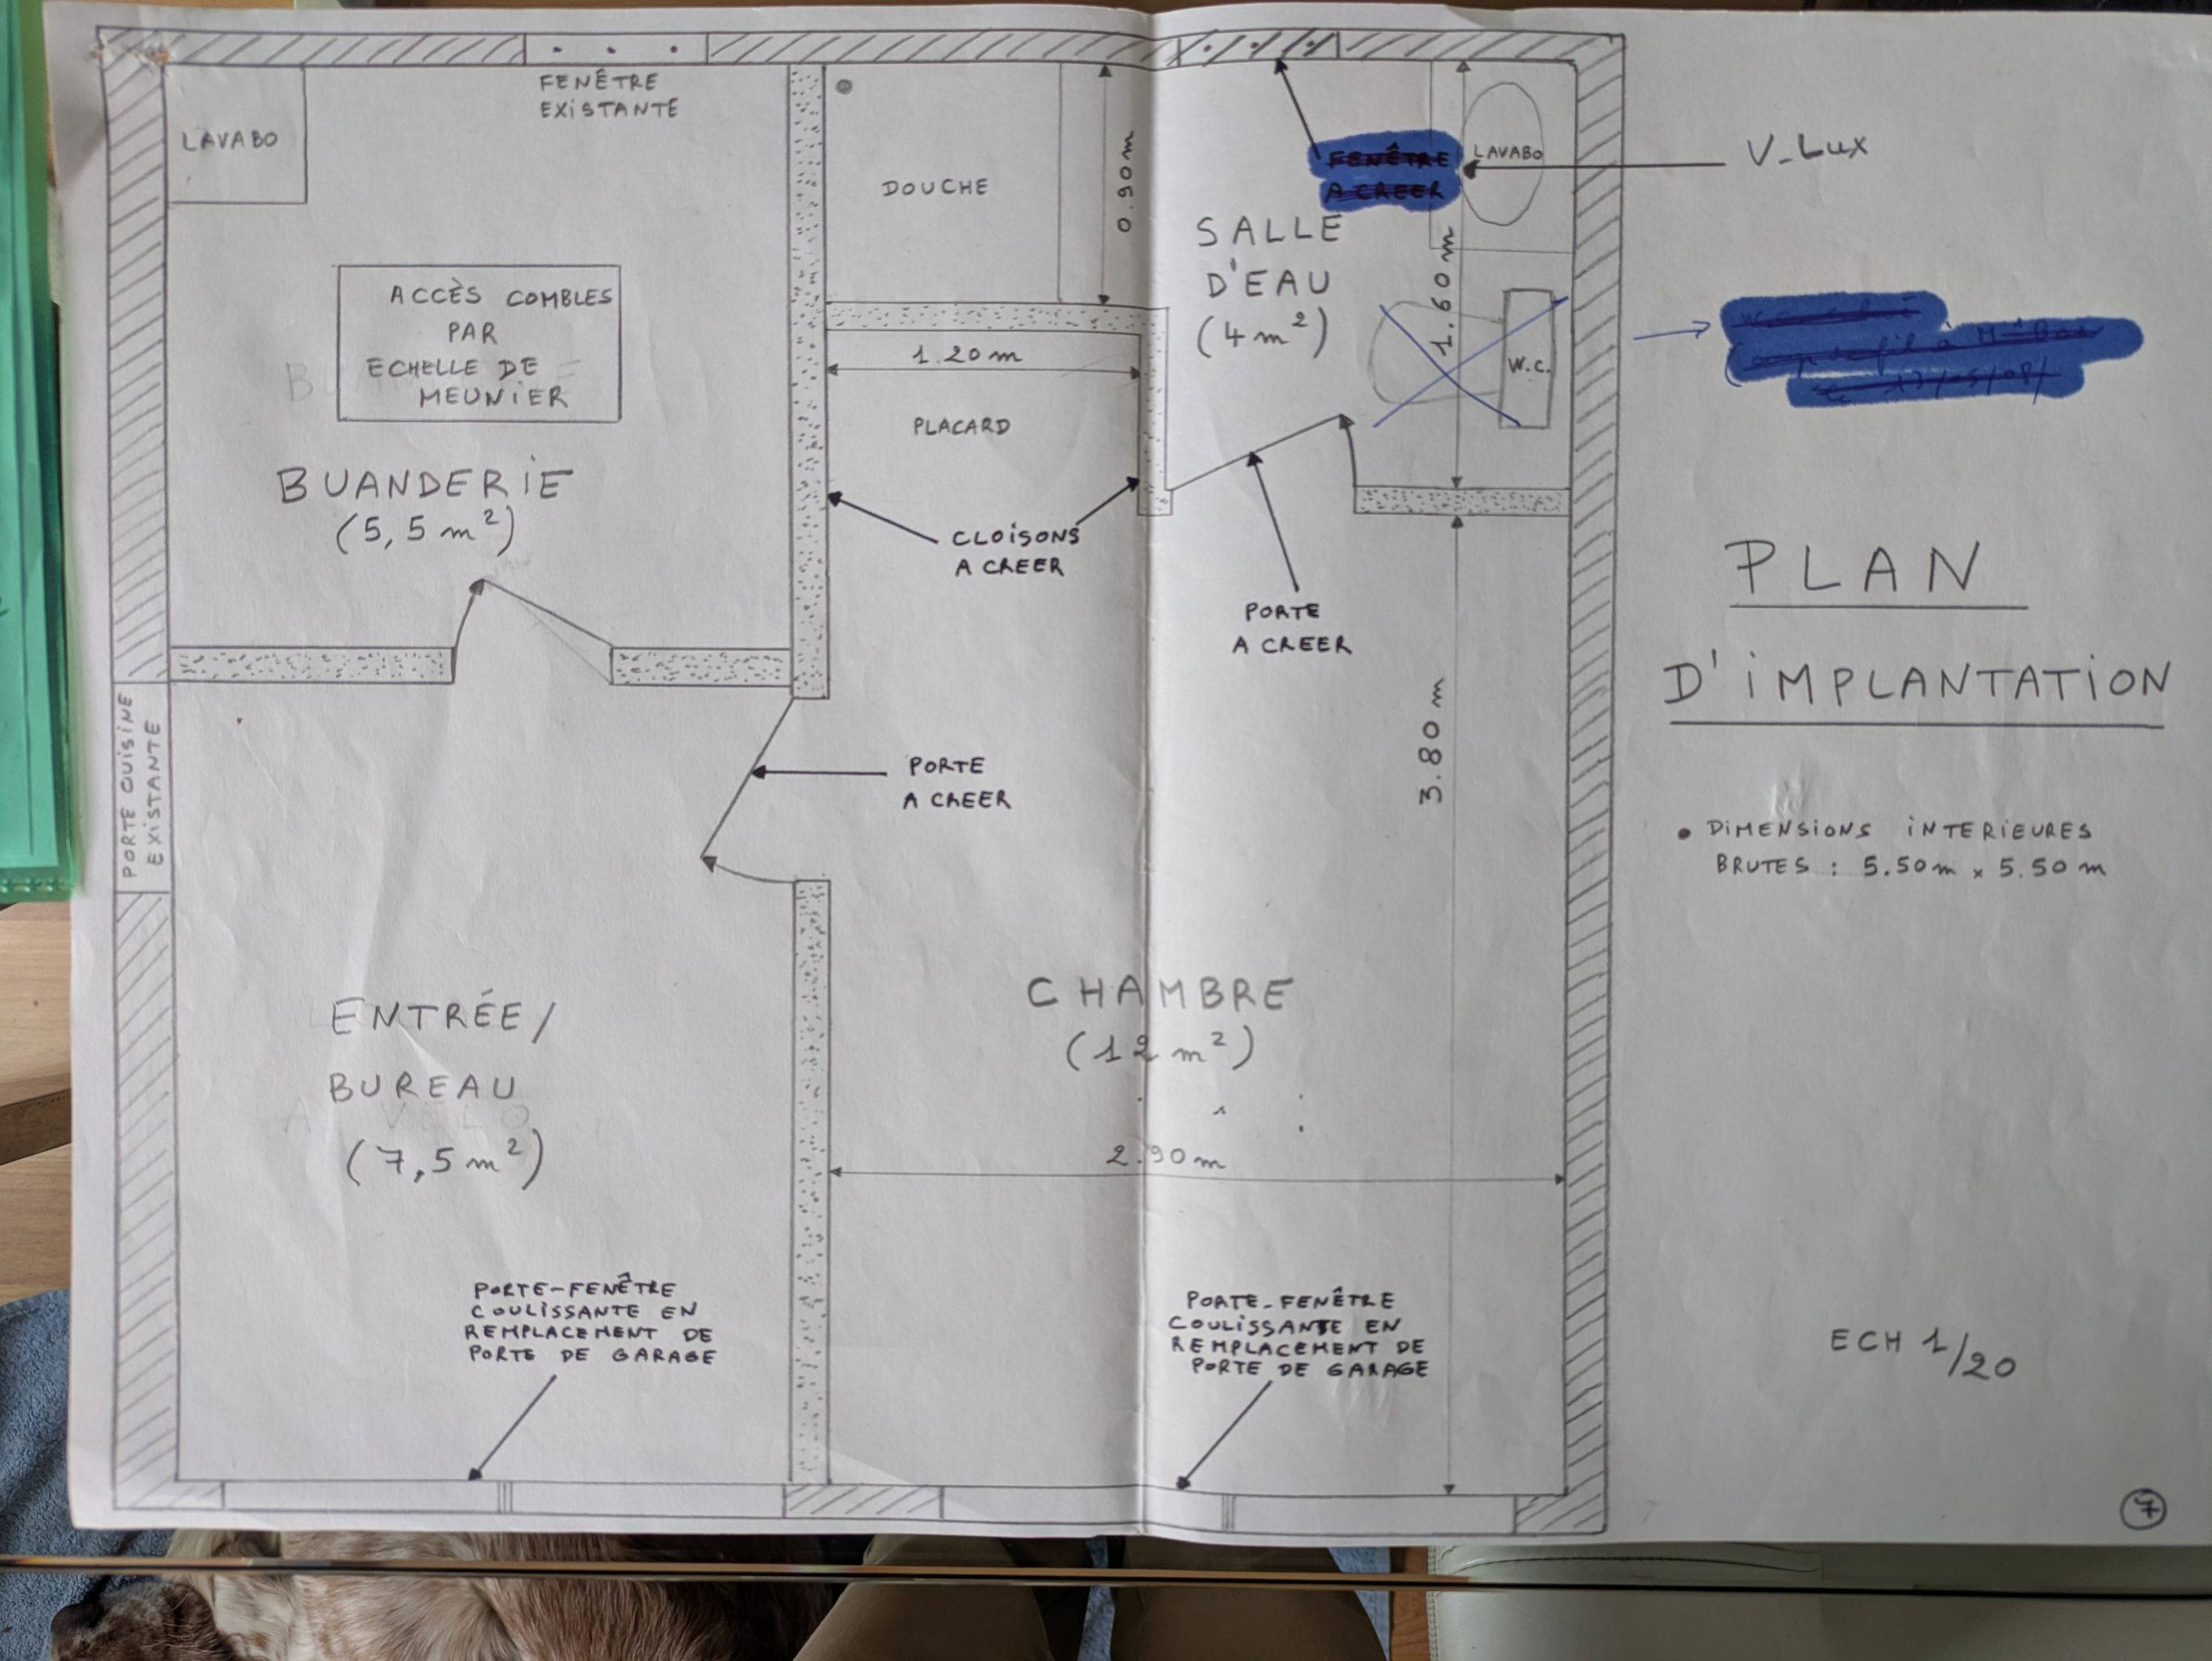 FENÊTRE
EXISTANTE
LAVABO
DOUCHE
0.90 m
FENÊTRE
A CREER
LAVABO
V-Lux
SALLE
D'EAU
(4 m²)
1.60 m
W.C.
ACCÈS COMBLES
PAR
ECHELLE DE
MEUNIER
1.20 m
PLACARD
BUANDERIE
(5,5 m²)
CLOISONS
A CREER
PORTE
A CREER
PLAN
D'IMPLANTATION
PORTE CUISINE
EXISTANTE
PORTE
A CREER
3.80 m
• DIMENSIONS INTERIEURES
BRUTES : 5.50 m x 5.50 m
ENTRÉE/
BUREAU
(7,5 m²)
CHAMBRE
(12 m²)
2.90 m
PORTE-FENÊTRE
COULISSANTE EN
REMPLACEMENT DE
PORTE DE GARAGE
PORTE-FENÊTRE
COULISSANTE EN
REMPLACEMENT DE
PORTE DE GARAGE
ECH 1/20
7